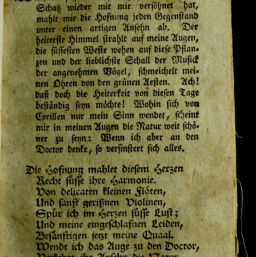 Schatz wieder mit mir versöhnet hat,
mahlt mir die Hofnung jeden Gegenstand
unter einen artigen Ansehn ab. Der
heiterste Himmel strahlt auf meine Augen,
die süssesten Weste wehen auf diese Pflan-
zen und der lieblichste Schall der Musick
der angenehmen Vögel, schmeichelt mei-
nen Ohren von den grünen Aesten. Ach!
daß doch die Heiterkeit von diesen Tage
beständig seyn möchte! Wohin sich von
Corillen nur mein Sinn wendet, scheint
mir in meinen Augen die Natur weit schö-
ner zu seyn: Wenn ich aber an den
Doctor denke, so verfinstert sich alles.
Die Hofnung mahlet diesem Herzen
Recht süsse ihre Harmonie.
Von delicaten kleinen Flöten,
Und sanft gerißnen Violinen,
Spür ich im Herzen süsse Lust;
Und meine eingeschlafnen Leiden,
Besänftigen jetzt meine Quaal.
Wendt ich das Auge zu den Doctor,